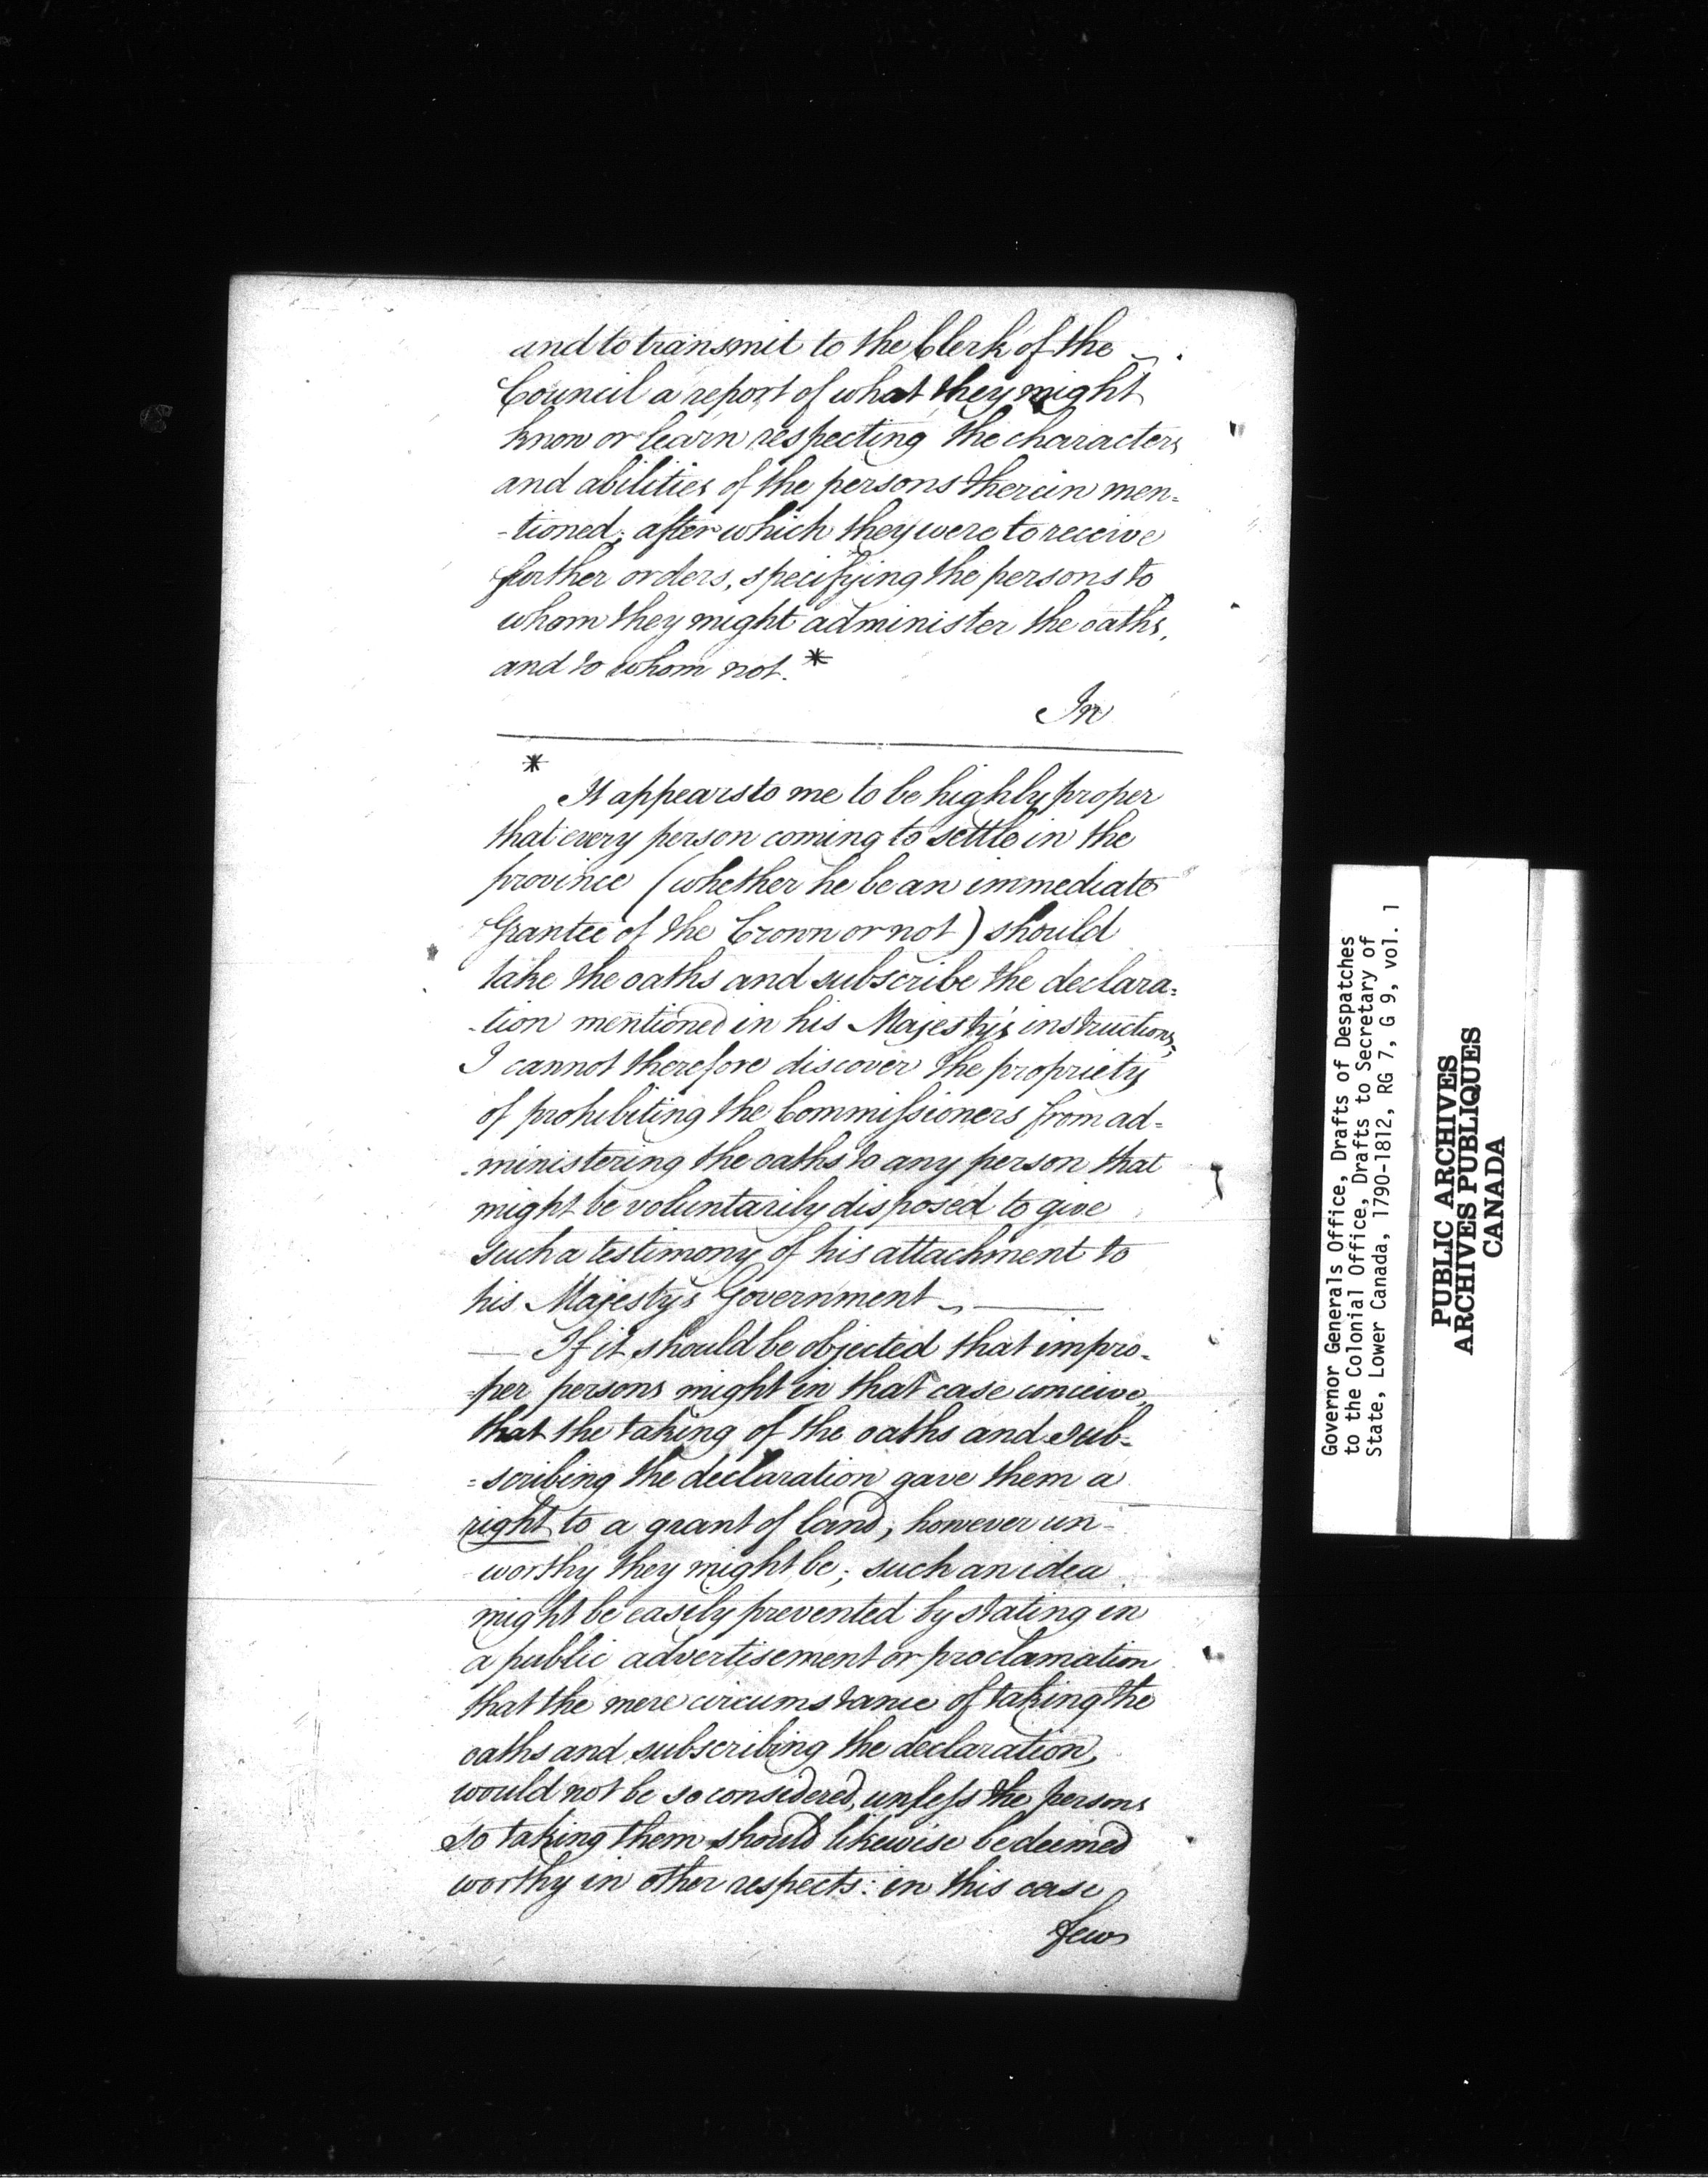 and to transmit to the Clerk of the
Council a report of what they might
know or learn respecting the characters
and abilities of the persons therein men=
-tioned; after which they were to receive
further orders, specifying the persons to
whom they might administer the oaths,
and to whom not. *
In
*
It appears to me to be highly proper
that every person coming to settle in the
province (whether he be an immediate
Grantee of the Crown or not) should
take the oaths and subscribe the declara=
-tion mentioned in his Majesty's instructions;
I cannot therefore discover the propriety
of prohibiting the Commissioners from ad=
-ministering the oaths to any person that
might be voluntarily disposed to give
such a testimony of his attachment to
his Majesty's Government —
— If it should be objected that impro-
-per persons might in that case conceive,
that the taking of the oaths and sub-
=scribing the declaration gave them a
right to a grant of land; however un-
worthy they might be; such an idea
might be easily prevented by stating in
a public advertisement or proclamation
that the mere circumstance of taking the
oaths and subscribing the declaration,
would not be so considered, unless the persons
so taking them should likewise be deemed
worthy in other respects: in this case
few
Governor Generals Office, Drafts of Despatches
to the Colonial Office, Drafts to Secretary of
State, Lower Canada, 1790-1812, RG 7, G 9, vol. 1
PUBLIC ARCHIVES
ARCHIVES PUBLIQUES
CANADA